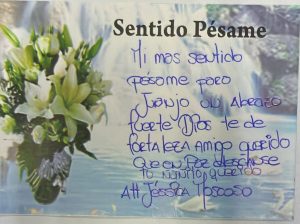 Sentido Pésame
Mi mas sentido
pesame para
Juanjo un Abrazo
fuerte Dios te de
fortaleza amigo querido
Que en Paz descanse
tu querido
Att Jéssica Moscoso